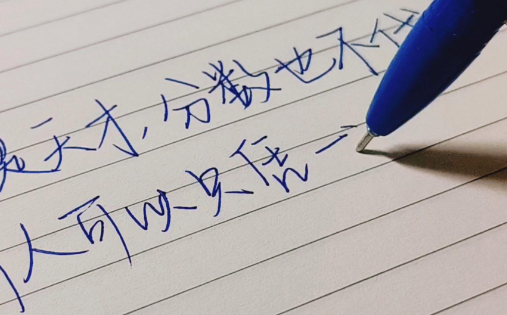 是天才,分数也不代
人可以只凭一